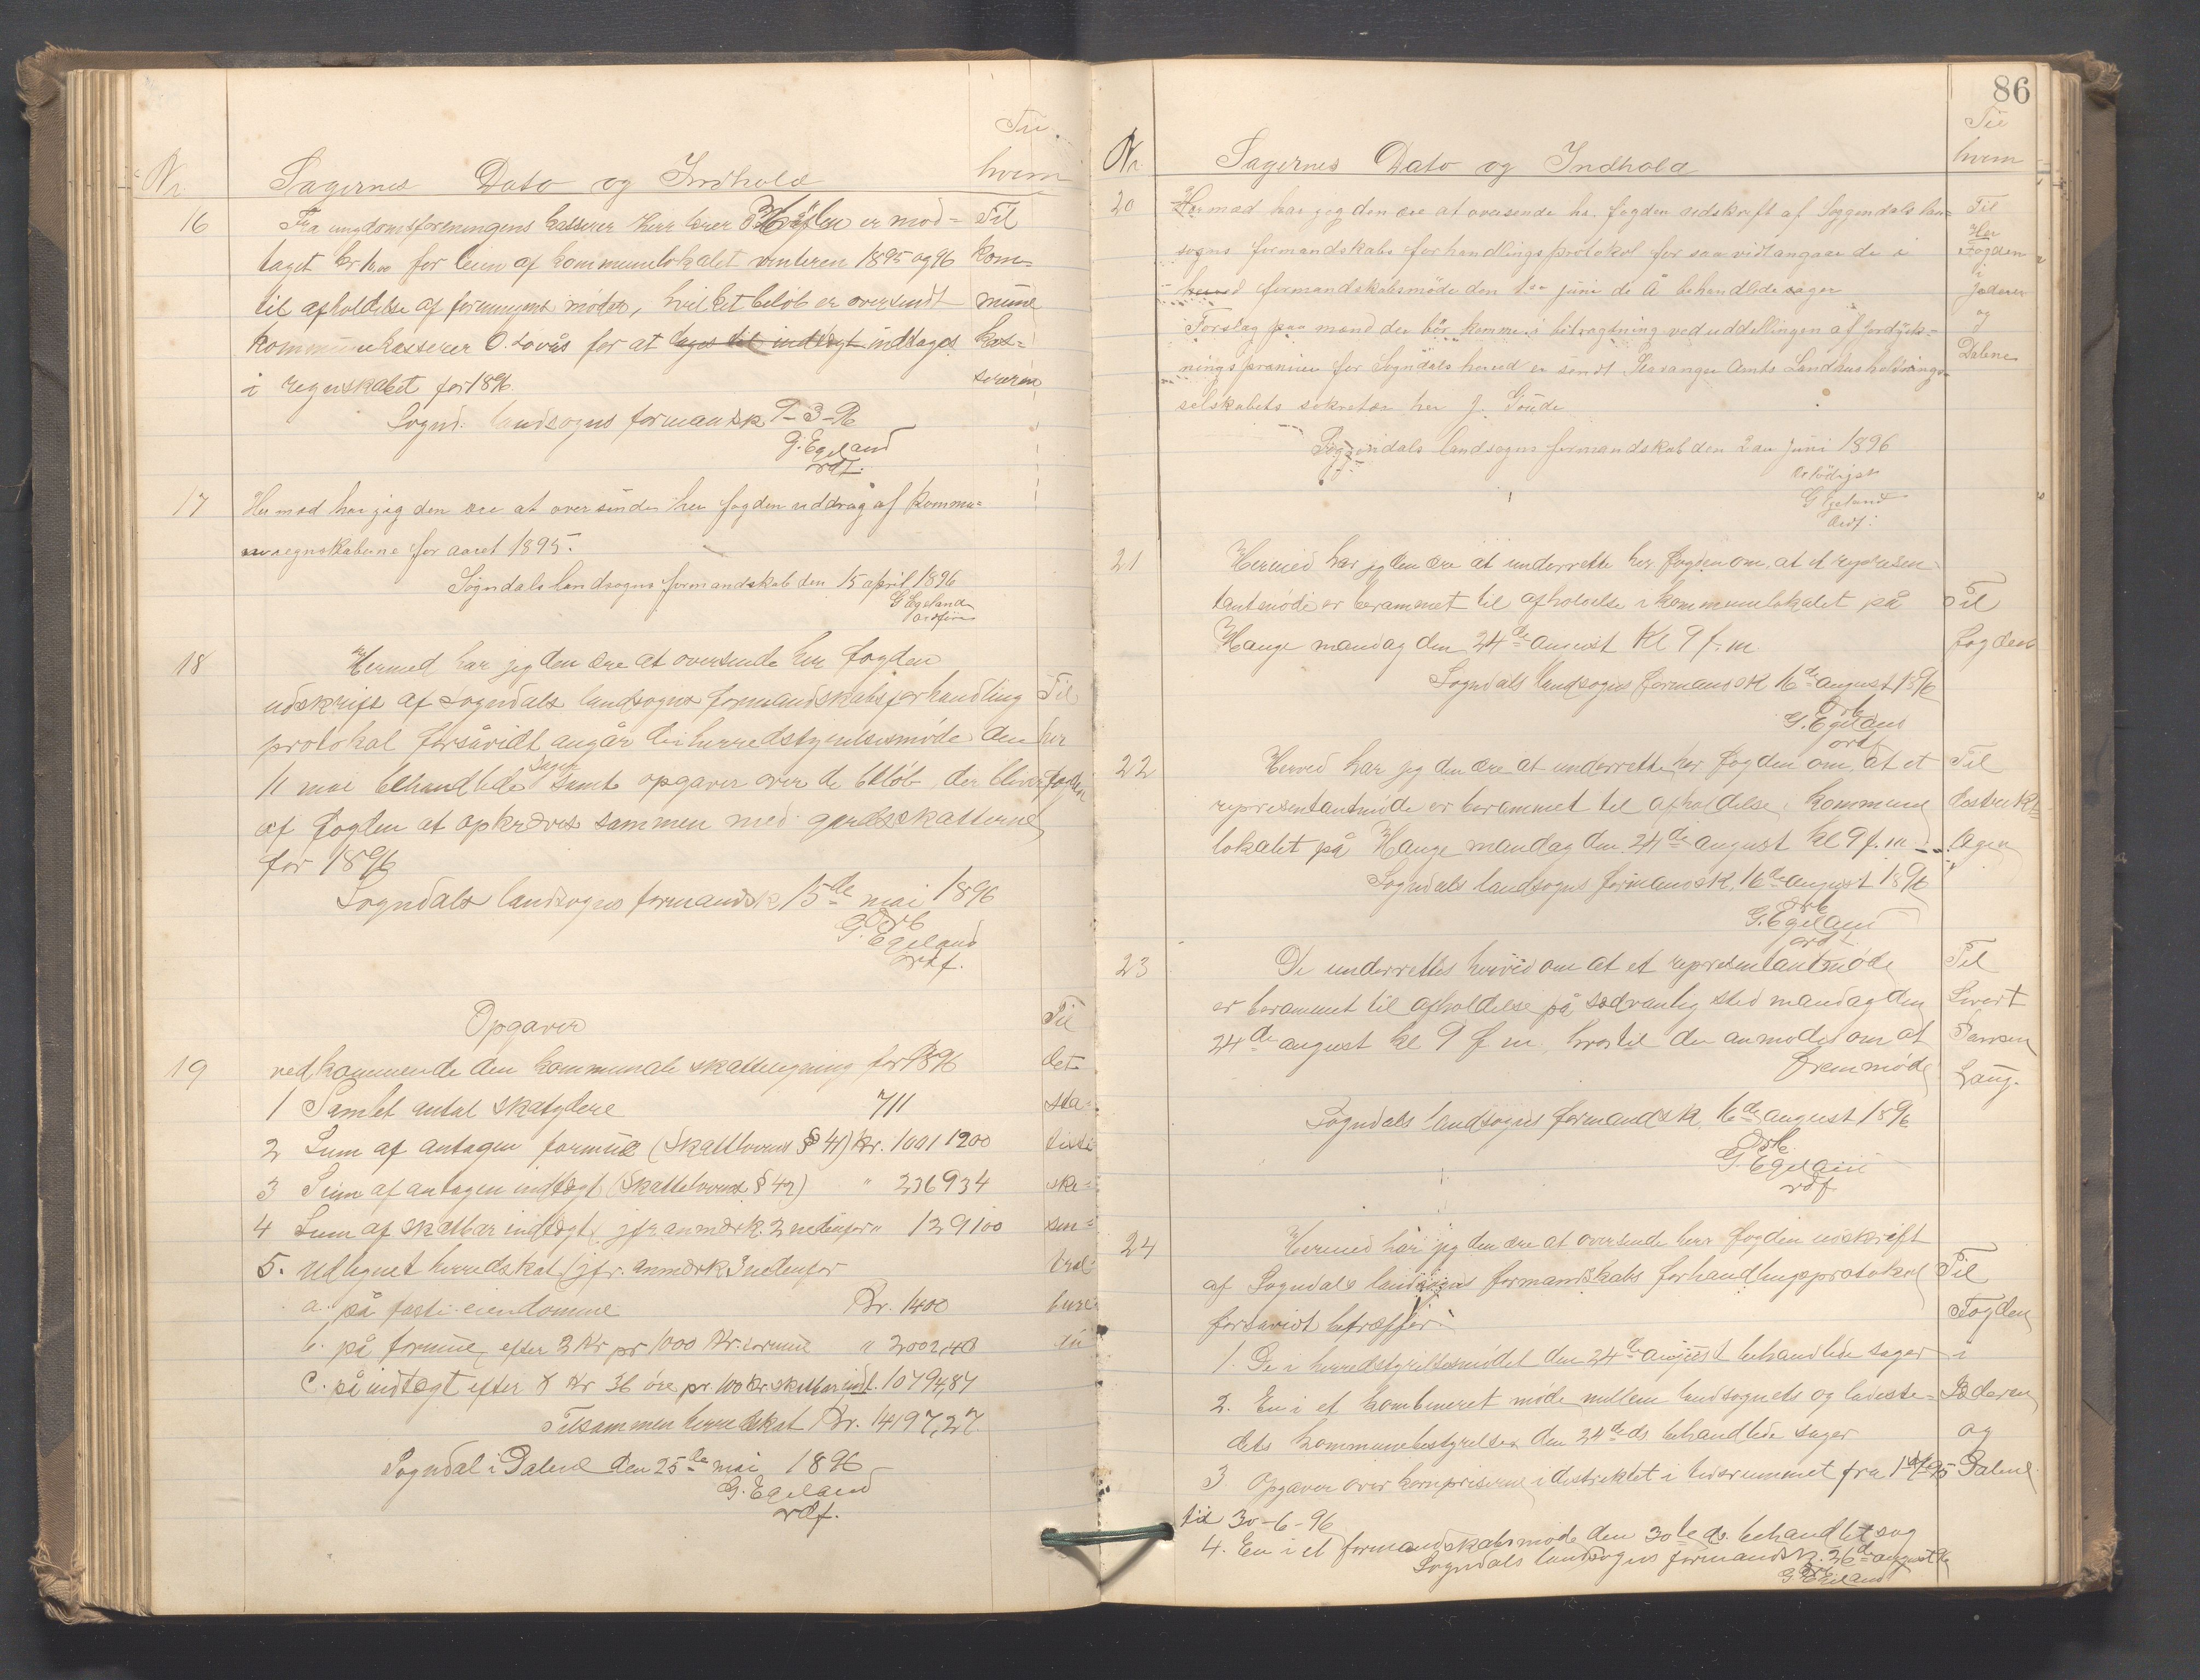 Nr. Sagernes Dato og Indhold Til hvem
16 Fra ungdomsforeningens kasserer Herr lærer er mod= Til
taget for leien af kommunelokalet vinteren 1895 og 96 kom=
til afholdelse af foreningens møder, hvilket beløb er oversendt mune
kommunekasserer O. Lovås for at indtages kas=
i regnskabet for 1896. sereren
Sognd. landsogns formandsk 9-3-96
G. Egeland
ordf.
17 Hermed har jeg den ære at oversende herr fogden uddrag af kommu=
neregnskaberne for aaret 1895.
Sogndals landsogns formandskab den 15 april 1896
G Egeland
ordfører
18 Hermed har jeg den ære at oversende herr fogden
udskrift af Sogndals landsogns formandskabsforhandling Til
protokol forsåvidt angår de i herredstyrelsesmøde den her
11 mai behandlede sager samt opgaver over de beløb, der bliver fogden
af fogden at opkræves sammen med skatterne
for 1896
Sogndals landsogns formandsk 15de mai 1896
Ærb
G. Egeland
ordf.
Opgaver Til
19 vedkommende den kommunale skatteligning for 1896 det
1 Samlet antal skatydere 711 sta=
2 Sum af antagen formue (Skattelovens § 41) kr. 1001200 tisti
3 Sum af antagen indtægt (Skattelovens § 42) " 236934 ske=
4 Sum af skatbar indtægt, jfr anmærk. 2 nedenfor " 129100 sen=
5. Udlignet herredskat (jfr. anmærk 3 nedenfor tral=
a. på faste eiendomme Kr. 1400 bure
b. på formue, efter 2 Kr pr 1000 Kr. formue " 2002,40 au
c. på indtægt efter 8 Kr 36 øre pr. 100 kr. skatbar indt. 10794,87
Tilsammen herredskat Kr. 14197,27.
Sogndal i Dalene den 25de mai 1896
G. Egeland
ordf.
86
Nr. Sagernes Dato og Indhold Til hvem
20 Hermed har jeg den ære at oversende hr. fogden udskrift af Soggendals lan= Til
sogns formandskabs forhandlingsprotokol for saavidt angaar de i Her Fogden
herred formandskabsmøde den 1ste juni d. Å behandlede sager i Jæderen
Forslag paa mænd der bør komme i betragtning ved uddelingen af jorddyrk= og
ningspræmier for Sogndals herred er sendt Stavanger Amts Landhusholdnings= Dalene
selskabets sekretær her J. Goude
Soggendals landsogns formandskab den 2den juni 1896
Ærbødigst
G Egeland
Ordf:
21 Hermed har jeg den ære at underrette her fogden om, at et represen
tantmøde er berammet til afholdelse i kommunelokalet på Til
Hauge mandag den 24de august Kl 9 f.m. fogden
Sogndals landsogns formandsk 16de august 1896
Ærb
G. Egeland
ordf
22 Herved har jeg den ære at underrette her fogden om, at et Til
representantmøde er berammet til afholdelse i kommune
lokalet på Hauge mandag den 24de august kl 9 f.m.
Sogndals landsogns formandsk. 16de august 1896
Ærb
G. Egeland
ordf.
23 De underrettes herved om at et representantmøde Til
er berammet til afholdelse på sædvanlig sted mandag den Sivert
24de august kl 9 f.m. hvortil du anmodes om at
fremmøde
Sogndals landsogns formandsk. 16de august 1896
Ærb.
G. Egeland
ordf.
24 Hermed har jeg den ære at oversende herr fogden udskrift
af Sogndals landsogns formandskabs forhandlingsprotokol Til
forsavidt betræffer: Fogden
1. De i herredstyrelsesmødet den 24de august behandlede sager i
2. En i et kombineret møde mellem landsognets og ladeste= Jæderen
dets kommunebestyrelser den 24de ds behandlede sager og
3 Opgaver over kornpriserne i distriktet i tidsrummet fra 1/7 95 Dalene
til 30-6-96
4. En i et formandskabsmøde den 30te ds. behandlet sag
Sogndals landsogns formandsk. 26de august 96
Ærb
G Egeland